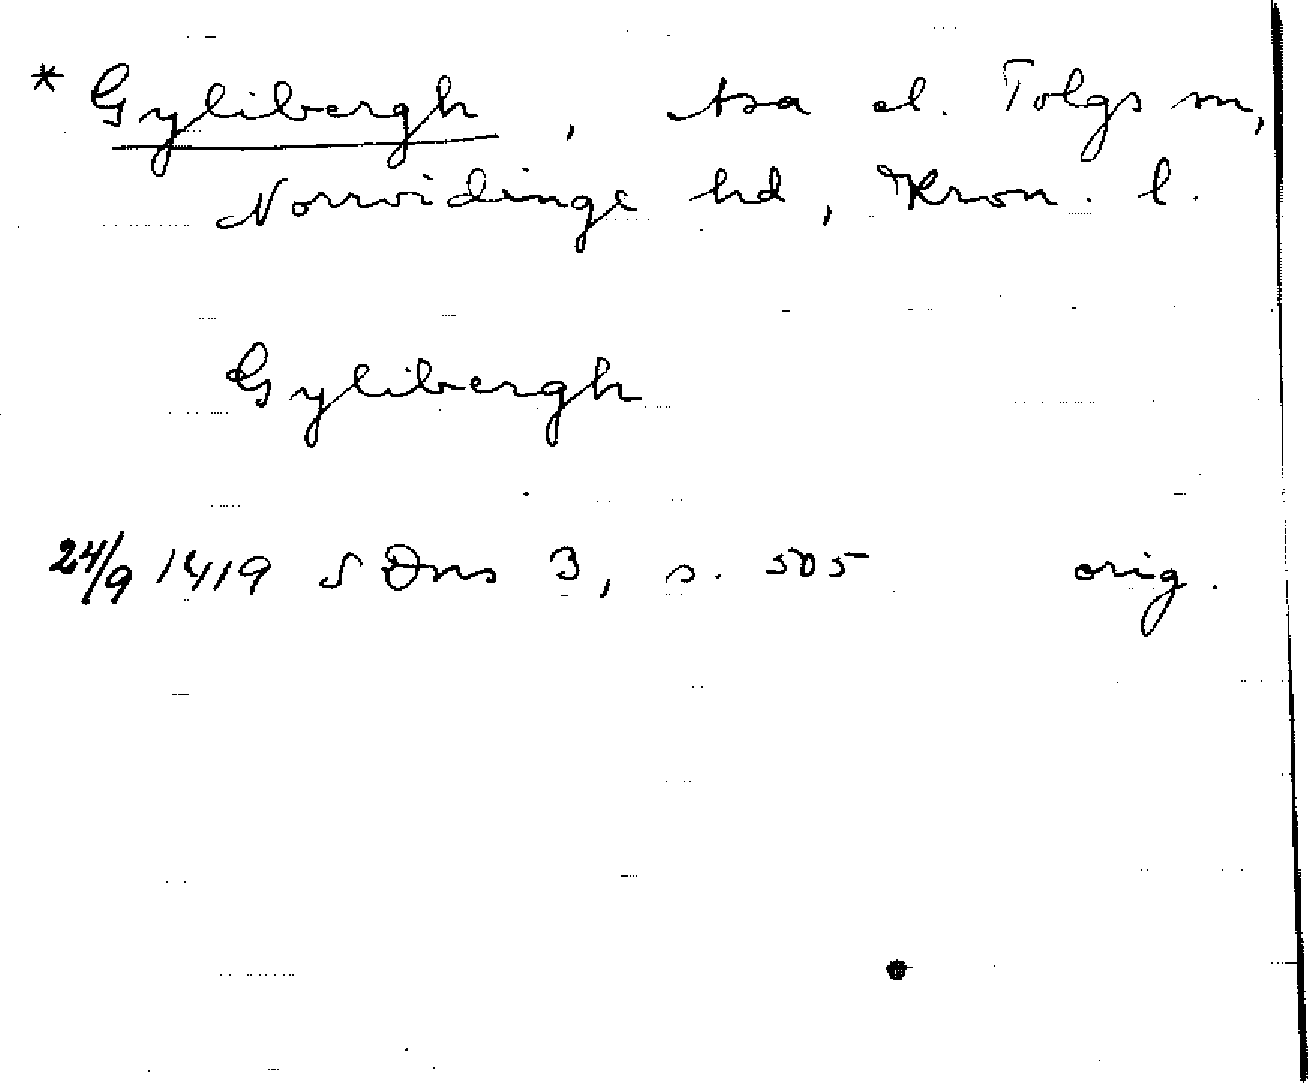 * Gylibergh, Asa el. Tolgs sn,
Norrvidinge hd, Kron. l.
Gylibergh
24/9 1419 SDns 3, s. 505 orig.